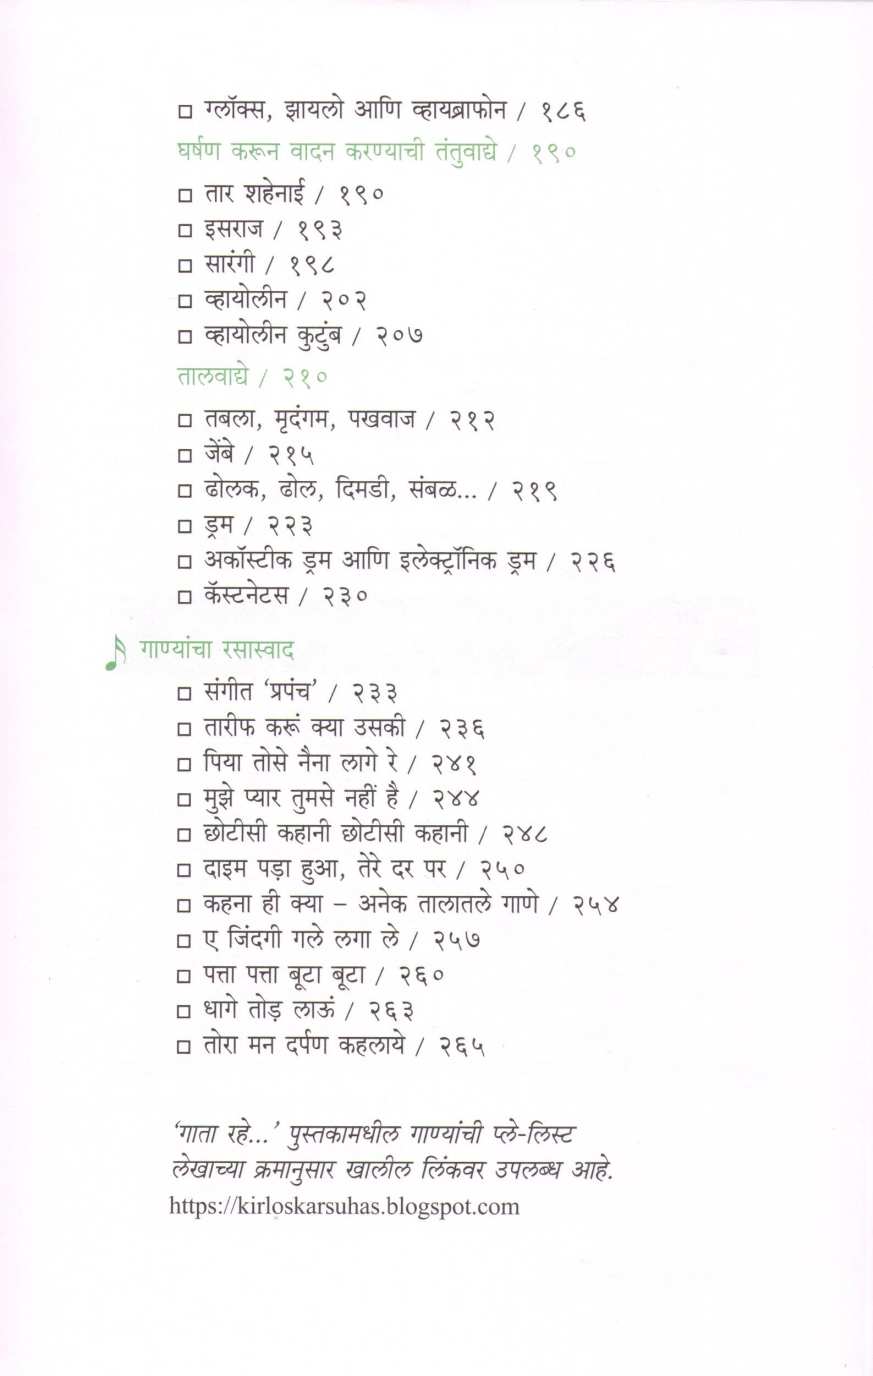 ग्लॉक्स, झायलो आणि व्हायब्राफोन / १८६
घर्षण करून वादन करण्याची तंतुवाद्ये / १९०
तार शहेनाई / १९०
इसराज / १९३
सारंगी / १९८
व्हायोलीन / २०२
व्हायोलीन कुटुंब / २०७
तालवाद्ये / २१०
तबला, मृदंगम, पखवाज / २१२
जेंबे / २१५
ढोलक, ढोल, दिमडी, संबळ... / २१९
ड्रम / २२३
अकॉस्टीक ड्रम आणि इलेक्ट्रॉनिक ड्रम / २२६
कॅस्टनेटस / २३०
गाण्यांचा रसास्वाद
संगीत ‘प्रपंच’ / २३३
तारीफ करूं क्या उसकी / २३६
पिया तोसे नैना लागे रे / २४१
मुझे प्यार तुमसे नहीं है / २४४
छोटीसी कहानी छोटीसी कहानी / २४८
दाइम पड़ा हुआ, तेरे दर पर / २५०
कहना ही क्या – अनेक तालातले गाणे / २५४
ए जिंदगी गले लगा ले / २५७
पत्ता पत्ता बूटा बूटा / २६०
धागे तोड़ लाऊं / २६३
तोरा मन दर्पण कहलाये / २६५
‘गाता रहे...’ पुस्तकामधील गाण्यांची प्ले-लिस्ट
लेखाच्या क्रमानुसार खालील लिंकवर उपलब्ध आहे.
https://kirloskarsuhas.blogspot.com